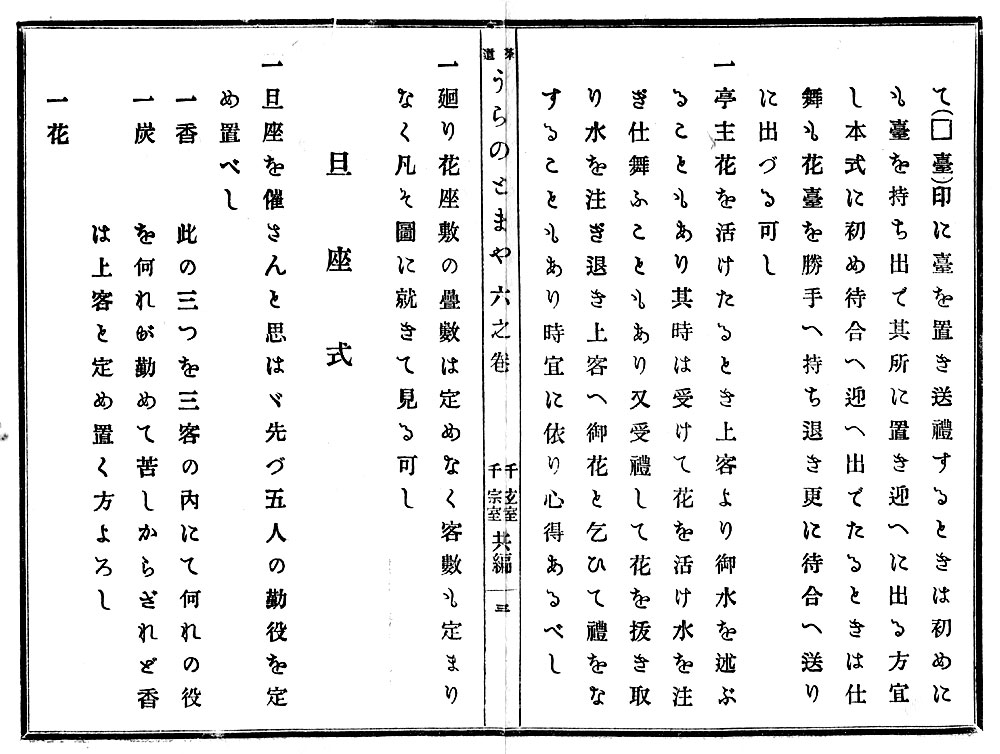 て(囗臺)印に臺を置き送禮するときは初めに
も臺を持ち出で其所に置き迎へに出る方宜
し本式に初め待合へ迎へ出でたるときは仕
舞も花臺を勝手へ持ち退き更に待合へ送り
に出づる可し
一亭主花を活けたるとき上客より御水を述ぶ
ることもあり其時は受けて花を活け水を注
ぎ仕舞ふこともあり又受禮して花を拔き取
り水を注ぎ退き上客へ御花と乞ひて禮をな
することもあり時宜に依り心得あるべし
茶道 うらのとまや六之卷 千玄室 千宗室 共編 三
一廻り花座敷の疊數は定めなく客數も定まり
なく凡そ圖に就きて見る可し
旦座式
一旦座を催さんと思はゞ先づ五人の勤役を定
め置べし
一香 此の三つを三客の內にて何れの役
一炭 を何れが勤めて苦しからざれど香
は上客と定め置く方よろし
一花